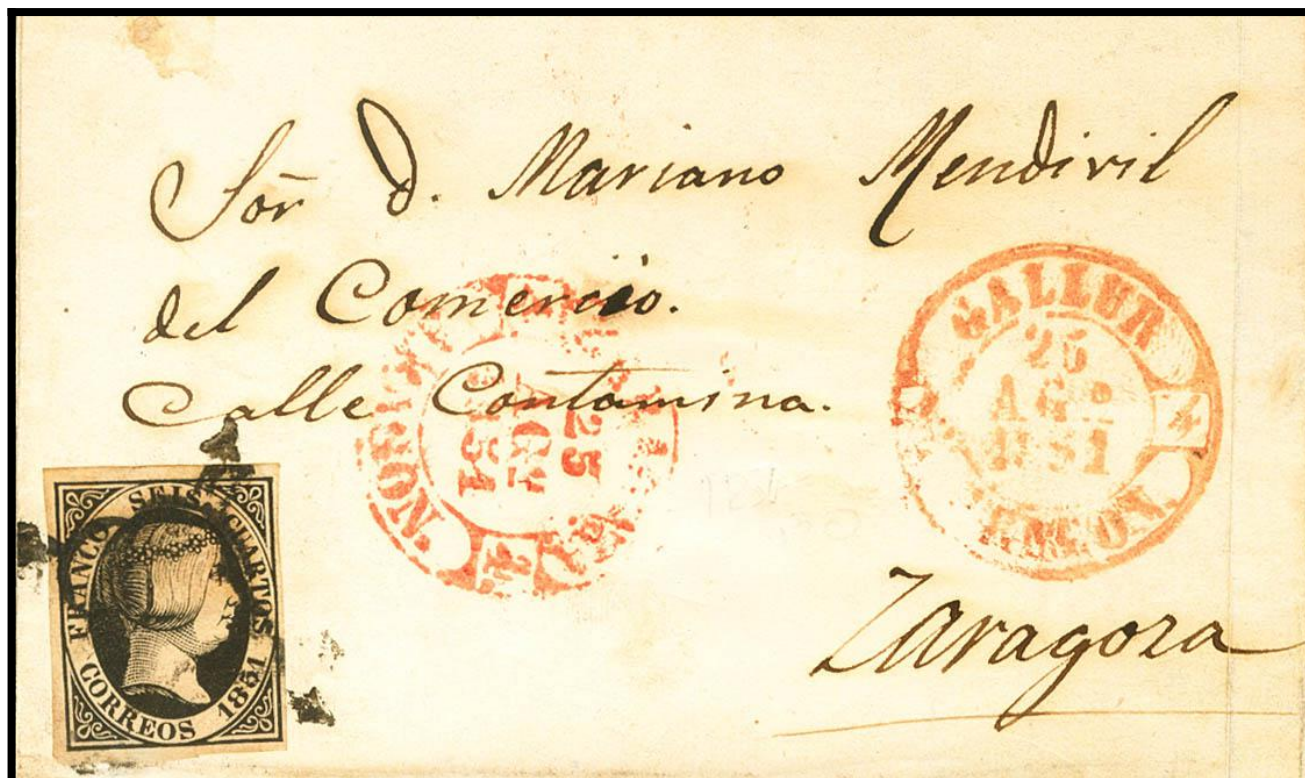 Sor D. Mariano Mendivil
del Comercio.
Calle Contamina.
Zaragoza
GALLUR
25
AGO
1851
ARAGON.
4
25
AGO
1851
ARAGON.
4
FRANCO SEIS CUARTOS
CORREOS 1851